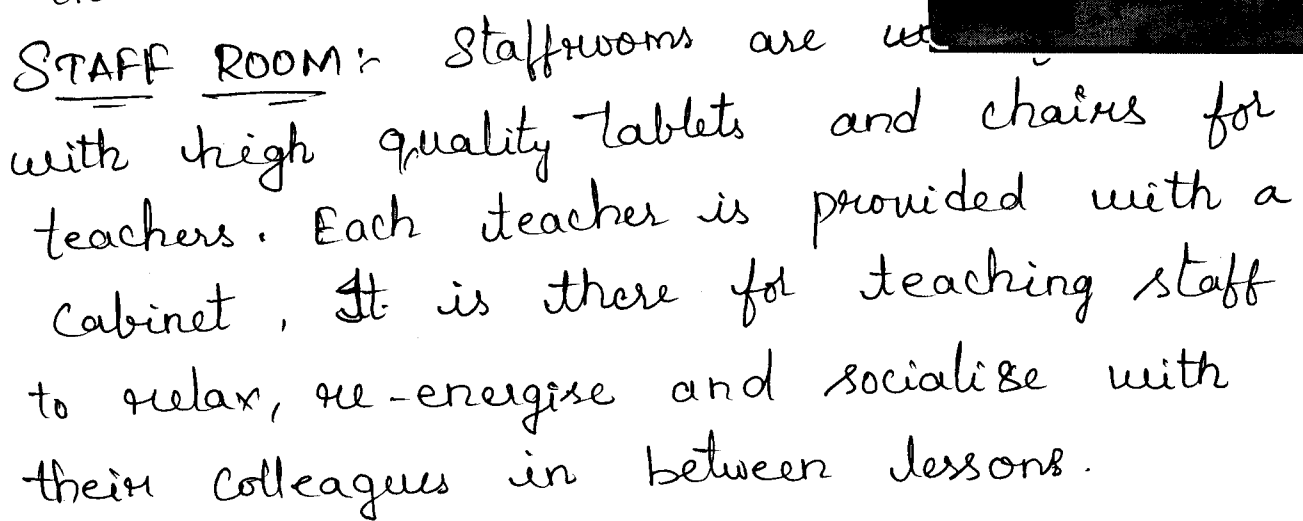 STAFF ROOM:- Staffrooms are
with high quality tablets and chairs for
teachers. Each teacher is provided with a
cabinet, It is there for teaching staff
to relax, re-energise and socialise with
their colleagues in between lessons.